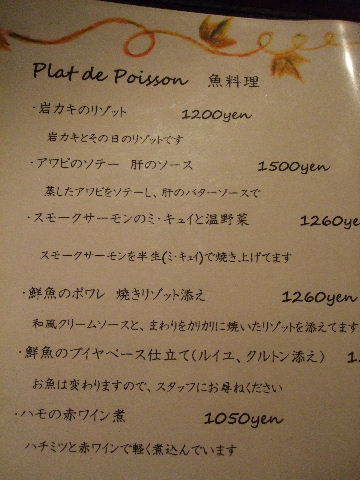 Plat de Poisson 魚料理
・岩カキのリゾット 1200yen
岩カキとその日のリゾットです
・アワビのソテー 肝のソース 1500yen
蒸したアワビをソテーし、肝のバターソースで
・スモークサーモンのミ・キュイと温野菜 1260ye
スモークサーモンを半生(ミ・キュイ)で焼き上げてます
・鮮魚のポワレ 焼きリゾット添え 1260yen
和風クリームソースと、まわりをカリカリに焼いたリゾットを添えてます
・鮮魚のブイヤベース仕立て(ルイユ、クルトン添え)
お魚は変わりますので、スタッフにお尋ねください
・ハモの赤ワイン煮 1050yen
ハチミツと赤ワインで軽く煮込んでいます